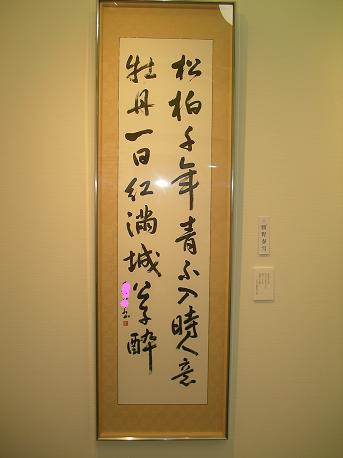 松柏千年青不入時人意
牡丹一日紅満城公子酔